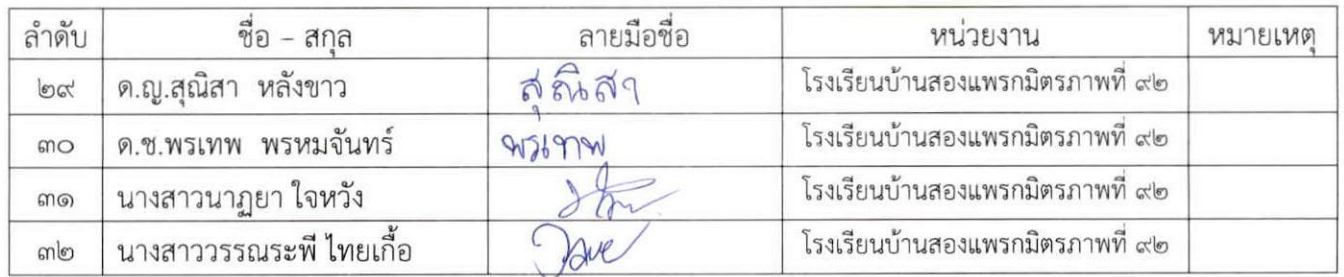 ลำดับ ชื่อ - สกุล ลายมือชื่อ หน่วยงาน หมายเหตุ
๒๙ ด.ญ.สุณิสา หลังขาว สุณิสา โรงเรียนบ้านสองแพรกมิตรภาพที่ ๙๒
๓๐ ด.ช.พรเทพ พรหมจันทร์ พรเทพ โรงเรียนบ้านสองแพรกมิตรภาพที่ ๙๒
๓๑ นางสาวนาฏยา ใจหวัง โรงเรียนบ้านสองแพรกมิตรภาพที่ ๙๒
๓๒ นางสาววรรณระพี ไทยเกื้อ โรงเรียนบ้านสองแพรกมิตรภาพที่ ๙๒